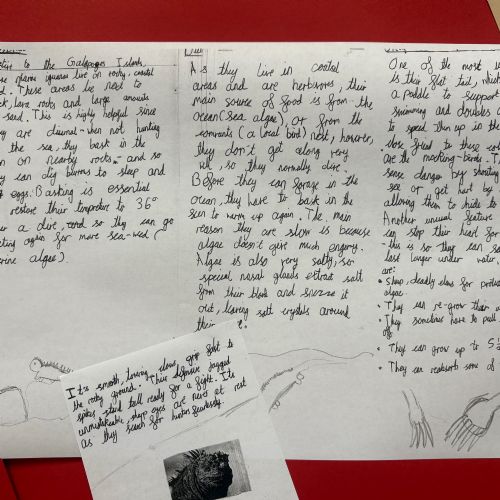 to the Galapagos Islands,
marine iguanas live on rocky, coastal
These areas be next to
lava rocks and large amounts
sand. This is highly helpful since
they are diurnal - when not hunting
the sea, they bask in the
on nearby rocks - and so
can dig burrows to sleep and
eggs. Basking is essential
restore their temprature to 36°
a dive, and so they can go
again for more sea-weed (
marine algae).
Diet
As they live in coastal
areas and are herbivores, their
main source of food is from the
ocean (sea algae), or from the
(a local bird) nest, however,
they don't get along very
well, so they normally dive.
Before they can forage in the
ocean, they have to bask in the
sun to warm up again. The main
reason they are slow is because
algae doesn't give much engery.
Algae is also very salty, so
special nasal glands extract salt
from their blood and sneeze it
out, leaving salt crystals around
their
One of the most
is their flat tail, which
a paddle to support
swimming and doubles
to speed then up in the
close fried to these
are the mocking-birds. T
sense danger by shouting
sea or get hurt by
allowing them to hide to
Another unusual feature
can stop their heart for
- this is so they can
last longer under water.
are:
• Sharp, deadly claws for
algae
• They can re-grow their
• They sometimes have to pull
off
• They can grow up to 5
• They can reabsorb some of
It's smooth, towing claws grip fast to
the rocky ground. Their defensive jagged
spikes stand tall ready for a fight. Its
unmistakeable, sharp eyes are never at rest
as they search for fearlessly.